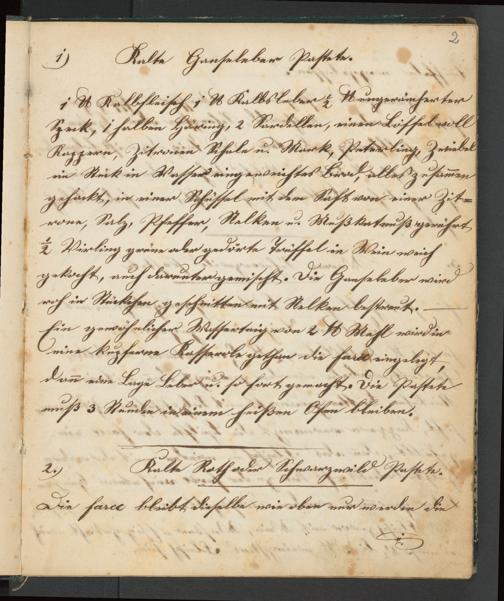 2
1) Kalte Gansleber Pastete.
1 ℔ Kalbfleisch, 1 ℔ Kalbsleber ½ ℔ ungeräucherter
Speck, 1 halben Häring, 2 Sardellen, einen Löffel voll
Kappern, Zitronen Schale u. Mark, Peterling, Zwiebel
ein Stück in Wasser eingeweichtes Brod, alles zusammen
gehackt, in einer Schüssel mit dem Saft von einer Zit=
rone, Salz, Pfeffer, Nelken u. Mußkatnuß gerührt,
½ Virling grüne oder gedörte Trüffel in Wein weich
gekocht, auch darunter gemischt. Die Gansleber wird
roh in Stückchen geschnitten mit Nelken bestreut. —
Ein gewöhnlicher Wasserteig von 2 ℔ Mehl wird in
eine kupferne Kasserole gethan die farce eingelegt,
dann eine Lage Leber u. so fort gemacht. Die Pastete
muß 3 Stunden in einem heißen Ofen bleiben.
2.) Kalte Roth oder Schwarzwild Pastete.
Die farce bleibt dieselbe wie oben nur werden die